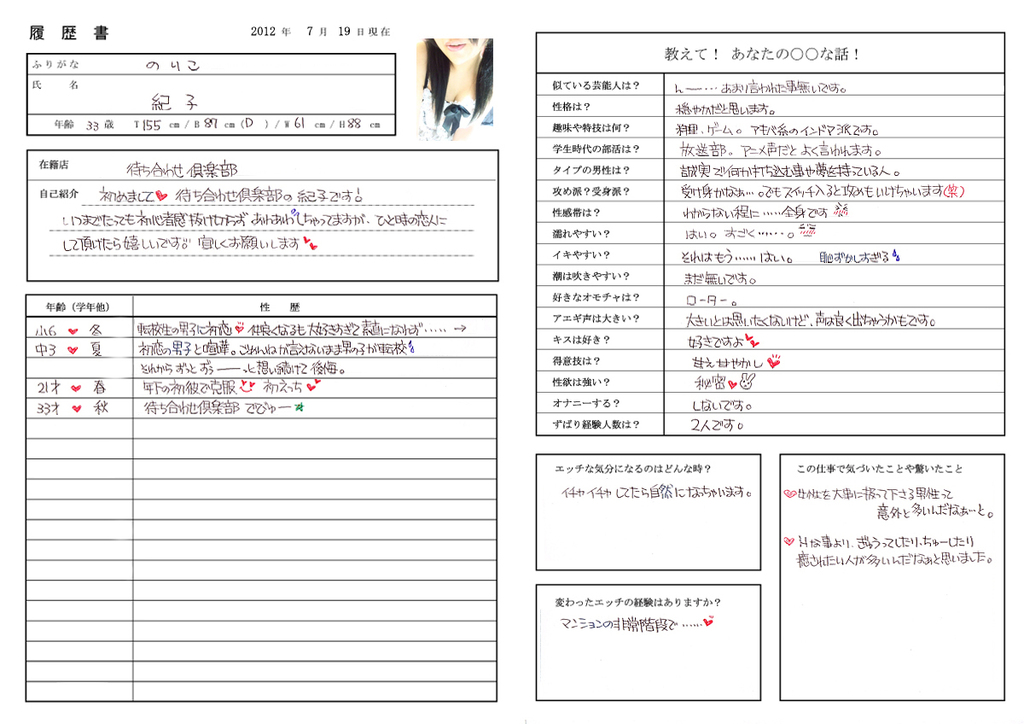 履 歴 書
2012 年 7 月 19 日現在
ふりがな のりこ
氏 名 紀子
年齢 33 歳 T 155 cm / B 87 cm (D ) / W 61 cm / H 88 cm
在籍店 待ち合わせ倶楽部
自己紹介 初めまして 待ち合わせ倶楽部の紀子です!
いつまでたっても初心者感抜けきらず あわあわしちゃってますが、ひと時の恋人に
して頂けたら嬉しいです!! 宜しくお願いします
年齢(学年他) 性 歴
小6 冬 転校生の男子に初恋 仲良くなるも大好きすぎて素直になれず……→
中3 夏 初恋の男子と喧嘩。ごめんねが言えないまま男の子が転校
それからずっとずぅーーっと想い続けて後悔。
21才 春 年下の初彼で克服 初えっち
33才 秋 待ち合わせ倶楽部 でびゅー
教えて! あなたの〇〇な話!
似ている芸能人は? んー…あまり言われた事無いです。
性格は? 穏やかだと思います。
趣味や特技は何? 料理、ゲーム。アキバ系のインドア派です。
学生時代の部活は? 放送部。アニメ声だとよく言われます。
タイプの男性は? 誠実で何か打ち込む事や夢を持っている人。
攻め派?受身派? 受け身かなぁ…。でもスイッチ入ると攻めもいけちゃいます(笑)
性感帯は? わからない程に……全身です
濡れやすい? はい。すごく……。
イキやすい? それはもう……はい。 恥ずかしすぎる
潮は吹きやすい? まだ無いです。
好きなオモチャは? ローター。
アエギ声は大きい? 大きいとは思いたくないけど、声は良く出ちゃうかもです。
キスは好き? 好きですよ
得意技は? 甘え甘やかし
性欲は強い? 秘密
オナニーする? しないです。
ずばり経験人数は? 2人です。
エッチな気分になるのはどんな時?
イチャイチャしてたら自然になっちゃいます。
変わったエッチの経験はありますか?
マンションの非常階段で……
この仕事で気づいたことや驚いたこと
を大事に扱って下さる男性って
意外と多いんだなぁーと。
な事より、ぎゅうってしたり、ちゅーしたり
癒されたい人が多いんだなぁと思いました。